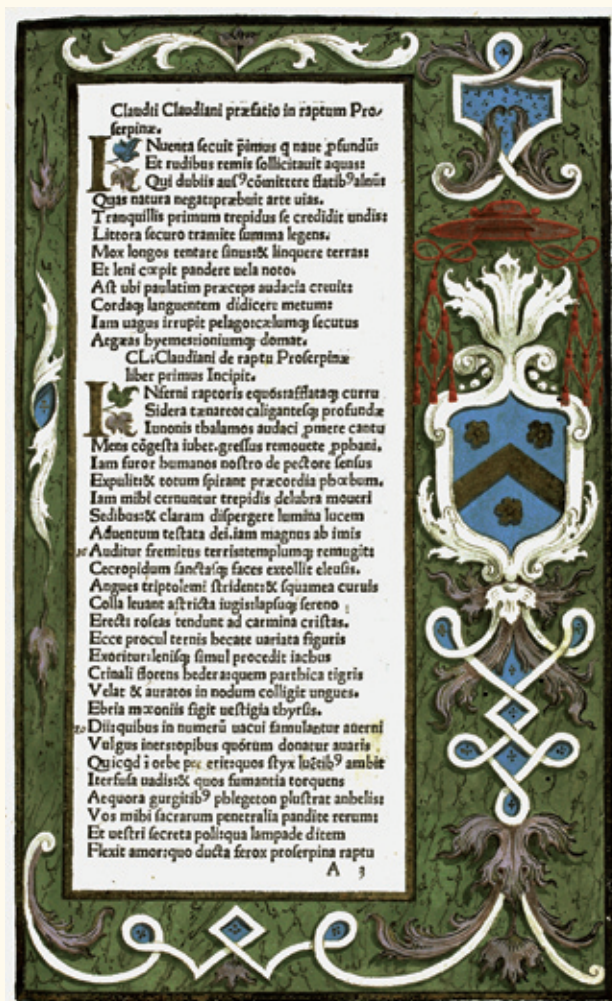 Claudii Claudiani præfatio in raptum Pro/
serpinæ.
INuenta secuit p̄imus q naue p̱fundū:
Et rudibus remis sollicitauit aquas:
Qui dubiis ausꝰ cōmittere flatibꝰ alnū:
Quas natura negat: præbuit arte uias.
Tranquillis primum trepidus se credidit undis:
Littora securo tramite summa legens.
Mox longos tentare sinus: & linquere terras:
Et leni cœpit pandere uela noto.
Ast ubi paulatim præceps audacia creuit:
Cordaq; languentem didicere metum:
Iam uagus irrupit pelago: cælumq; secutus
Aegæas hyemes: ioniumq; domat.
CL. Claudiani de raptu Proserpinæ
liber primus Incipit.
INferni raptoris equos: afflataq; curru
Sidera tænareo: caligantesq; profundæ
Iunonis thalamos audaci p̱mere cantu
Mens cōgesta iubet. gressus remouete p̱phani.
Iam furor humanos nostro de pectore sensus
Expulit: & totum spirant præcordia phœbum.
Iam mihi cernuntur trepidis delubra moueri
Sedibus: & claram dispergere lumina lucem
Aduentum testata dei. iam magnus ab imis
Auditur fremitus terris: templumq; remugit:
Cecropidum sanctasq; faces extollit eleusis.
Angues triptolemi strident: & squamea curuis
Colla leuant astricta iugis: lapsuq; sereno
Erecti roseas tendunt ad carmina cristas.
Ecce procul ternis hecate uariata figuris
Exoritur: lenisq; simul procedit iacbus
Crinali florens hedera: quem parthica tigris
Velat & auratos in nodum colligit ungues.
Ebria mæoniis figit uestigia thyrsus.
Dii: quibus in numerū uacui famulantur auerni
Vulgus iners: opibus quorum donatur auaris
Quicqd ī orbe perit: quos styx luētibꝰ ambit
Iterfusa uadis: & quos fumantia torquens
Aequora gurgitibꝰ phlegeton plustrat anhelis:
Vos mihi sacrarum penetralia pandite rerum:
Et uestri secreta poli: qua lampade ditem
Flexit amor: quo ducta ferox proserpina raptu
A 3